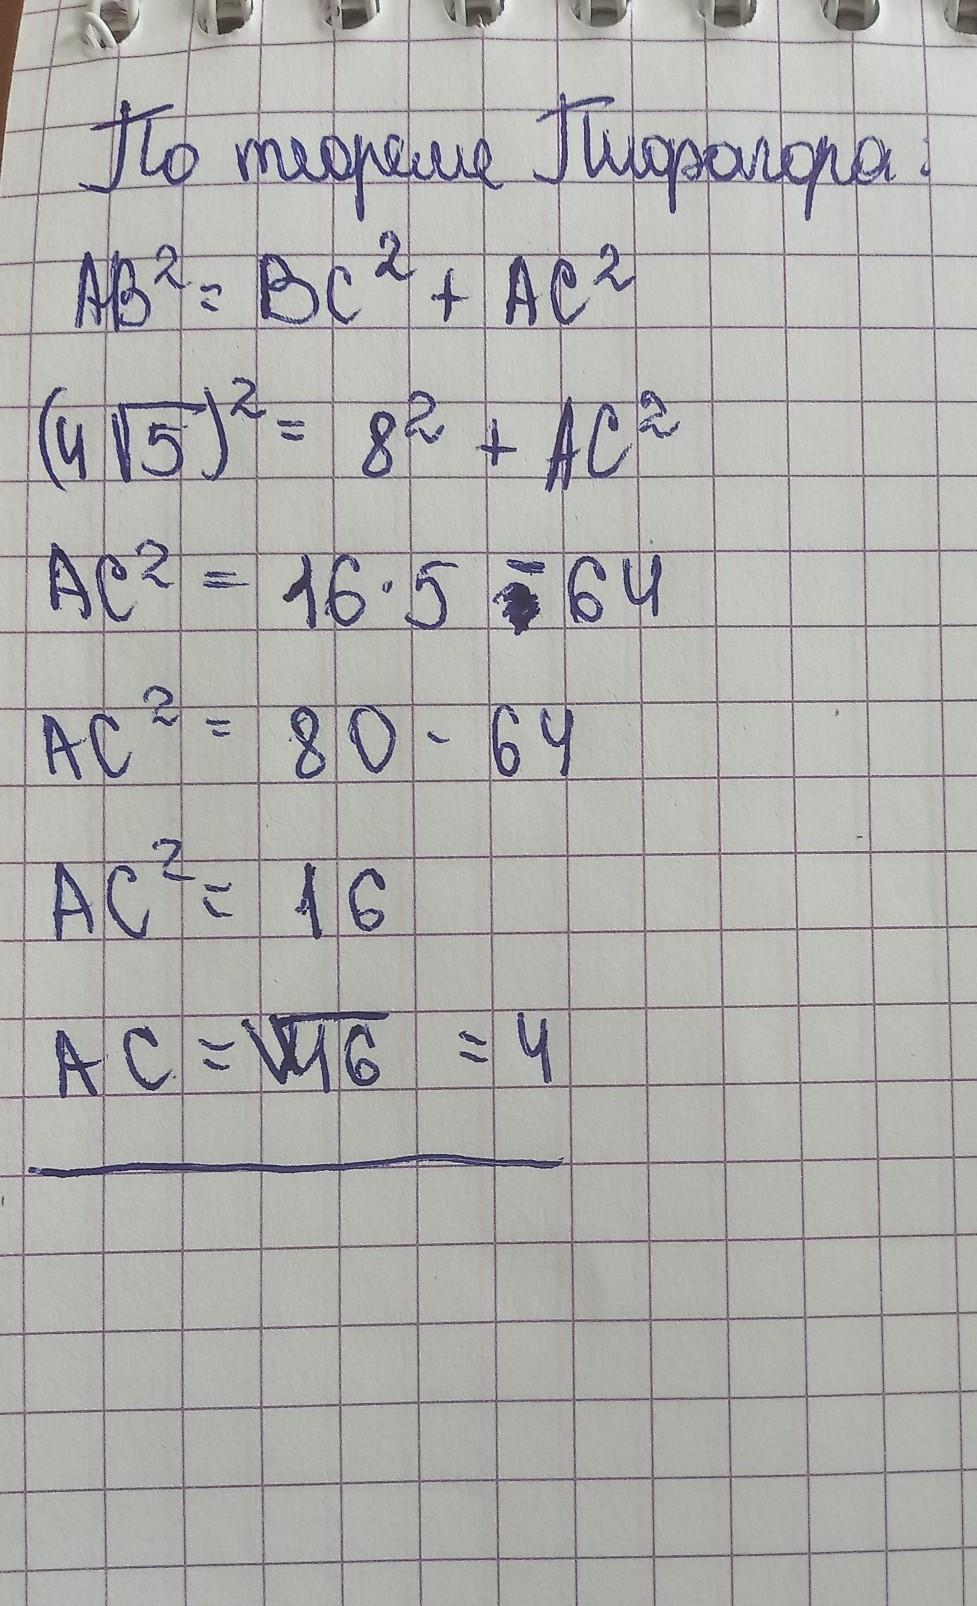 По теореме Пифагора:
AB² = BC² + AC²
(4√5)² = 8² + AC²
AC² = 16·5 - 64
AC² = 80 - 64
AC² = 16
AC = √16 = 4